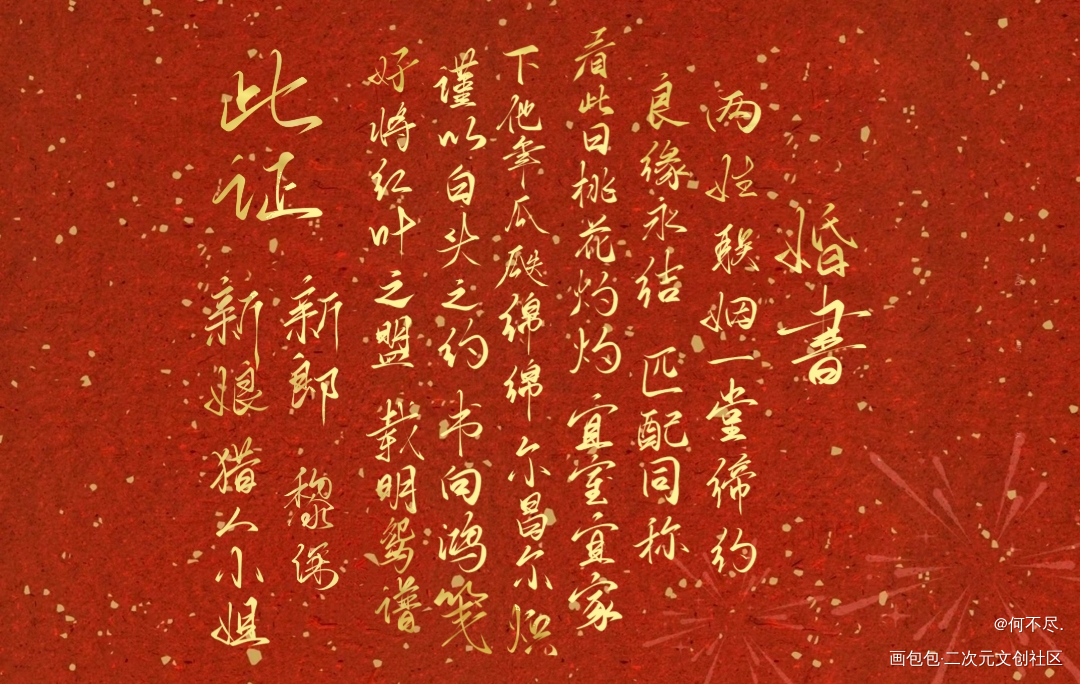 婚书
两姓联姻一堂缔约
良缘永结 匹配同称
看此日桃花灼灼 宜室宜家
卜他年瓜瓞绵绵 尔昌尔炽
谨以白头之约 书向鸿笺
好将红叶之盟 载明鸳谱
此证
新郎 黎深
新娘 猎人小姐
@何不尽.
画包包·二次元文创社区